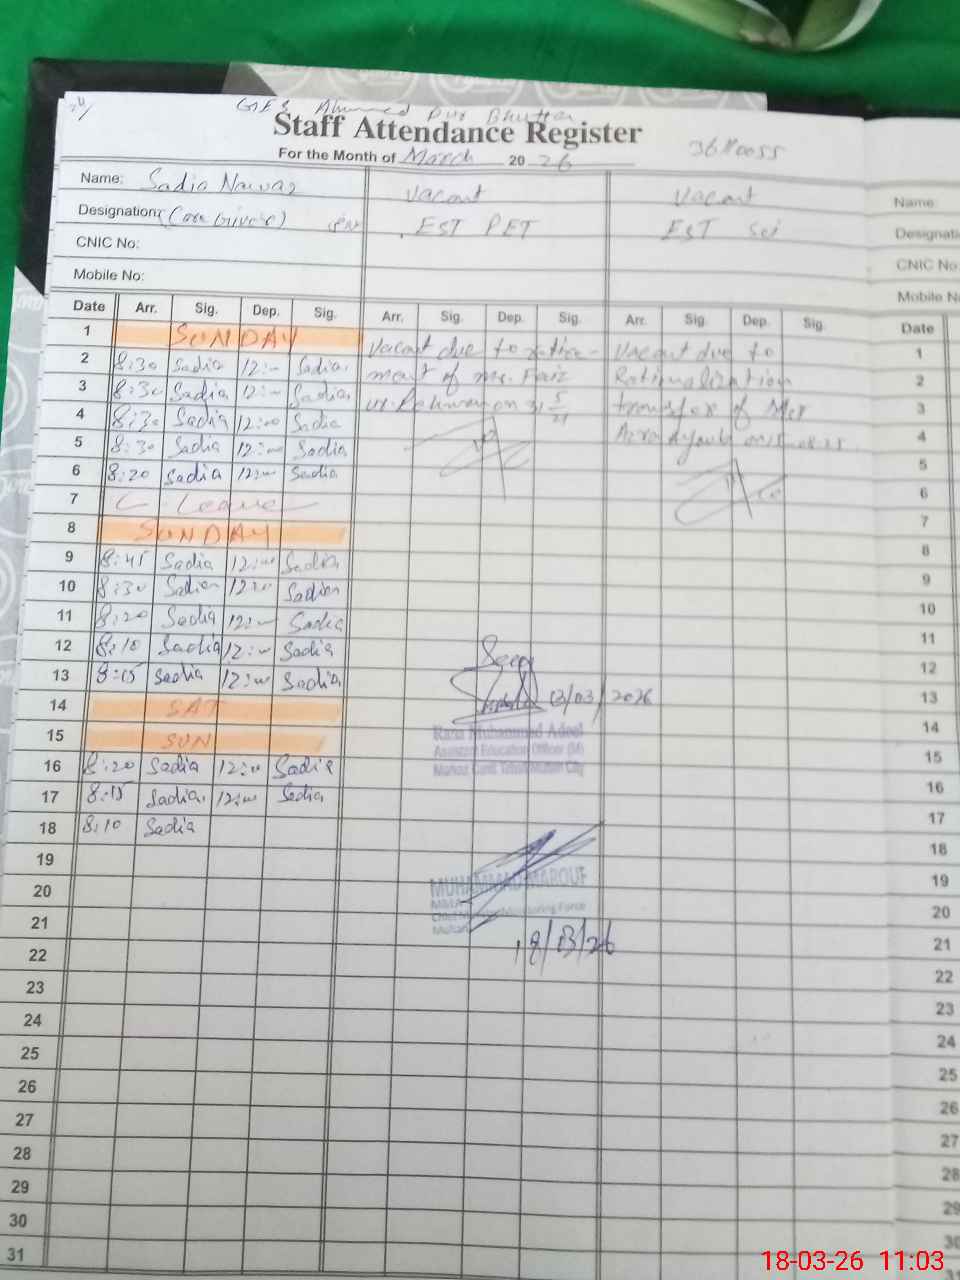 GES Ahmed Pur Bhutta
Staff Attendance Register
For the Month of March 2026
Name: Sadia Nawaz
Vacant
Vacant
Name:
Designation: (Care Giver)
EST PET
EST Sci
CNIC No:
CNIC No:
Mobile No:
Date Arr. Sig. Dep. Sig. Arr. Sig. Dep. Sig. Arr. Sig. Dep. Sig. Date
1 SUNDAY
2 8:30 Sadia 12:00 Sadia
3 8:30 Sadia 12:00 Sadia
4 8:30 Sadia 12:00 Sadia
5 8:30 Sadia 12:00 Sadia
6 8:20 Sadia 12:00 Sadia
7 C Leave
8 SUNDAY
9 8:45 Sadia 12:00 Sadia
10 8:30 Sadia 12:00 Sadia
11 8:20 Sadia 12:00 Sadia
12 8:10 Sadia 12:00 Sadia
13 8:15 Sadia 12:00 Sadia
14 SAT
15 SUN
16 8:20 Sadia 12:00 Sadia
17 8:15 Sadia 12:00 Sadia
18 8:10 Sadia
19
20
21
22
23
24
25
26
27
28
29
30
31
Vacant due to
Vacant due to
transfer of
Seen
13/03/2026
Muhammad Adeel
Assistant Education Officer (M)
MUHAMMAD MAROUF
18/03/26
1
2
3
4
5
6
7
8
9
10
11
12
13
14
15
16
17
18
19
20
21
22
23
24
25
26
27
28
29
30
18-03-26 11:03